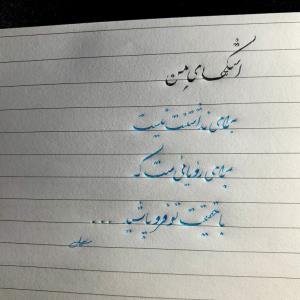 اشکهای من
برای نداشتنت نیست
برای رویائی ست که
با حقیقت تو فرو پاشید ...